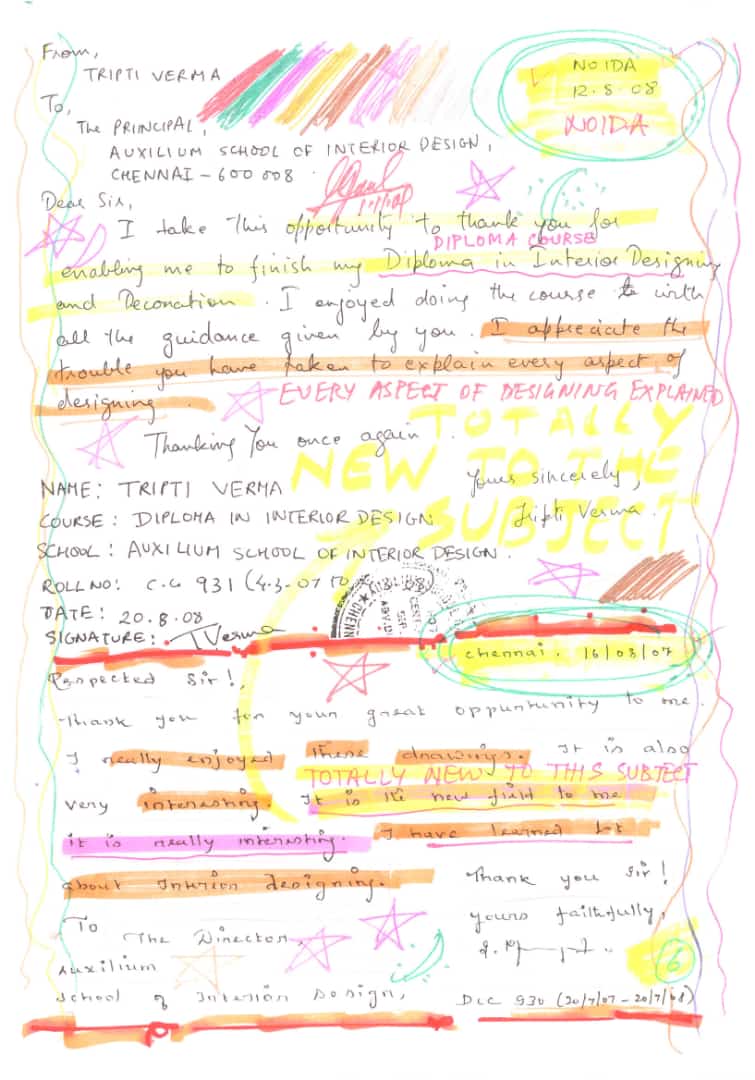 From,
TRIPTI VERMA
NOIDA
12.8.08
NOIDA
To,
The PRINCIPAL,
AUXILIUM SCHOOL OF INTERIOR DESIGN,
CHENNAI - 600 008.
Dear Sir,
I take this opportunity to thank you for
DIPLOMA COURSE
enabling me to finish my Diploma in Interior Designing
and Deconation. I enjoyed doing the course with
all the guidance given by you. I appreciate the
trouble you have taken to explain every aspect of
designing.
EVERY ASPECT OF DESIGNING EXPLAINED
Thanking You once again.
TOTALLY
NEW TO THE
SUBJECT
Yours sincerely,
Tripti Verma.
NAME: TRIPTI VERMA
COURSE: DIPLOMA IN INTERIOR DESIGN
SCHOOL: AUXILIUM SCHOOL OF INTERIOR DESIGN.
ROLL NO: C.G 931 (4.3.07 TO
DATE: 20.8.08
SIGNATURE: TVerma
chennai. 16/03/07
Respected Sir!,
Thank you for your great oppuntunity to me.
I really enjoyed these drawings. It is also
TOTALLY NEW TO THIS SUBJECT
very interesting. It is the new field to me
it is really interesting. I have learned lot
about Interior designing.
Thank you Sir!
yours faithfully,
To
The Director,
Auxilium
School of Interior Design,
DLC 930 (20/7/07 - 20/7/08)
6